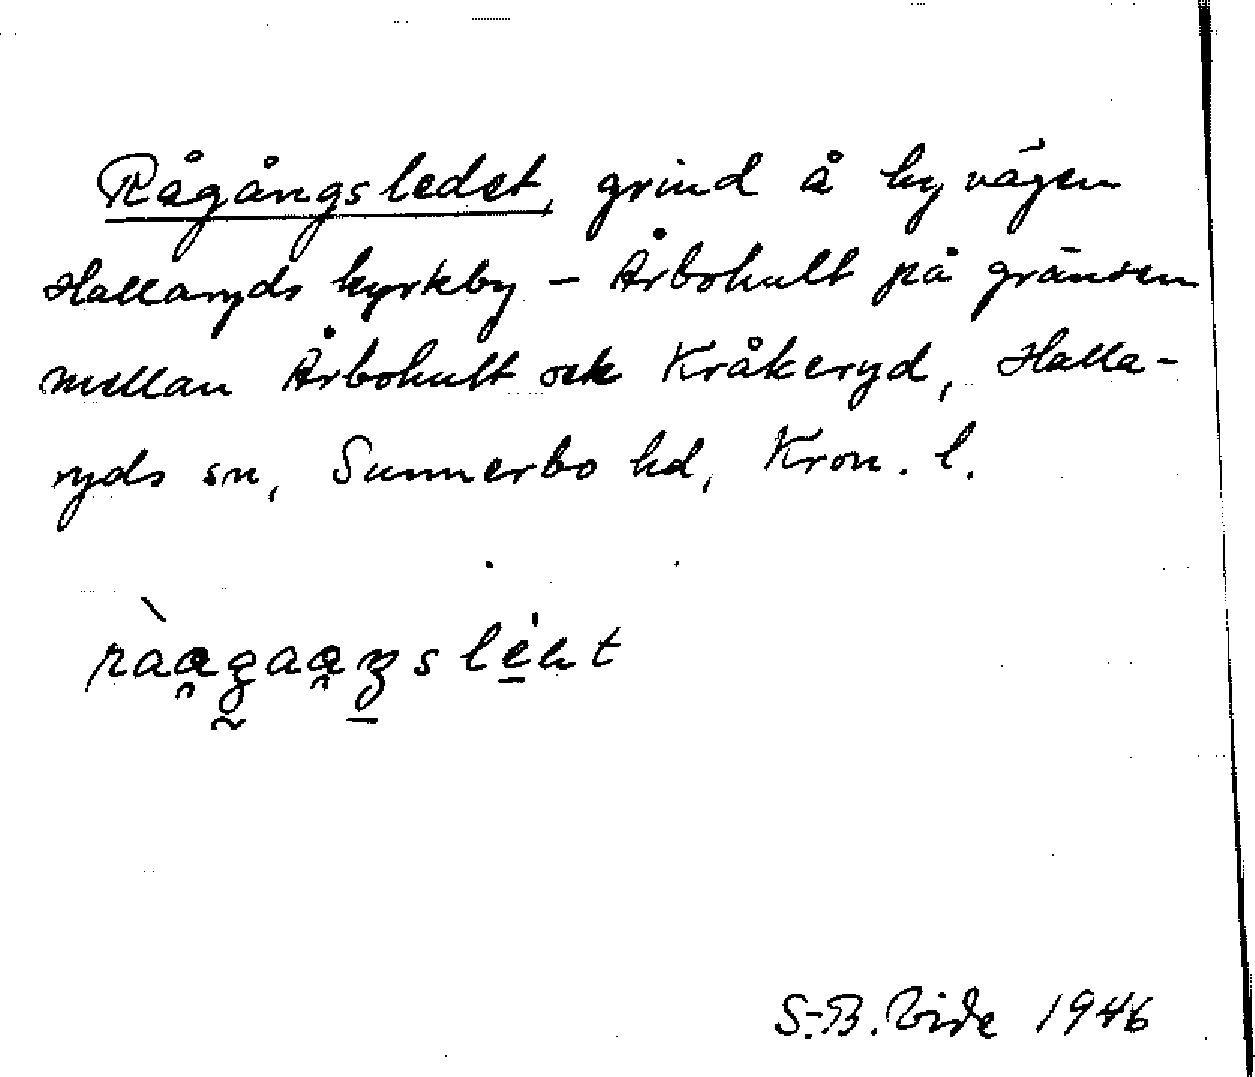 Rågångsledet, grind å byvägen
Hallaryds kyrkby – Årbohult på gränsen
mellan Årbohult ock Kråkeryd, Halla-
ryds sn, Sunnerbo hd, Kron. l.
S.-B. Vide 1946